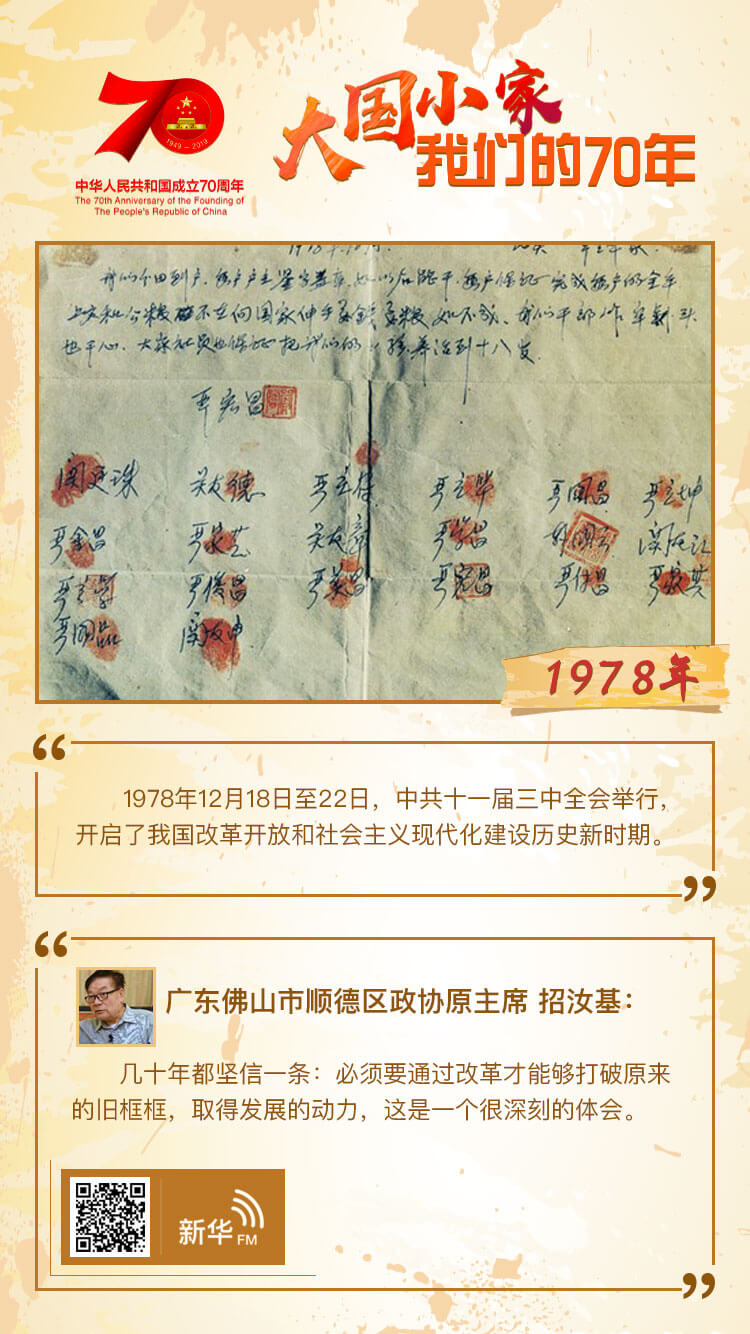 70
1949 – 2019
中华人民共和国成立70周年
The 70th Anniversary of the Founding of
The People's Republic of China
大国小家
我们的70年
我们分田到户，每户户主签字盖章，如以后能干，每户保证完成每户的全年
上交和公粮不在向国家伸手要钱要粮如不成，我们干部作牢刹头
也干心，大家社员也保证把我们的小孩养活到十八岁
严宏昌
关廷珠 关友德 严立符 严立华 严国昌 严立坤
严金昌 严家芝 关友章 严学昌 韩国云 关友江
严立学 严俊昌 严美昌 严宏昌 严付昌 严家其
严国品 关友申
1978年
“
1978年12月18日至22日，中共十一届三中全会举行，
开启了我国改革开放和社会主义现代化建设历史新时期。
”
“
广东佛山市顺德区政协原主席 招汝基：
几十年都坚信一条：必须要通过改革才能够打破原来
的旧框框，取得发展的动力，这是一个很深刻的体会。
新华FM
”